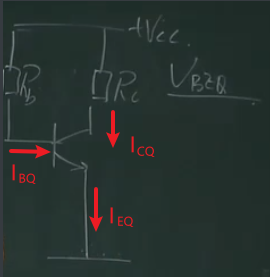 +Vcc.
Rb
Rc
VBEQ
ICQ
IBQ
IEQ